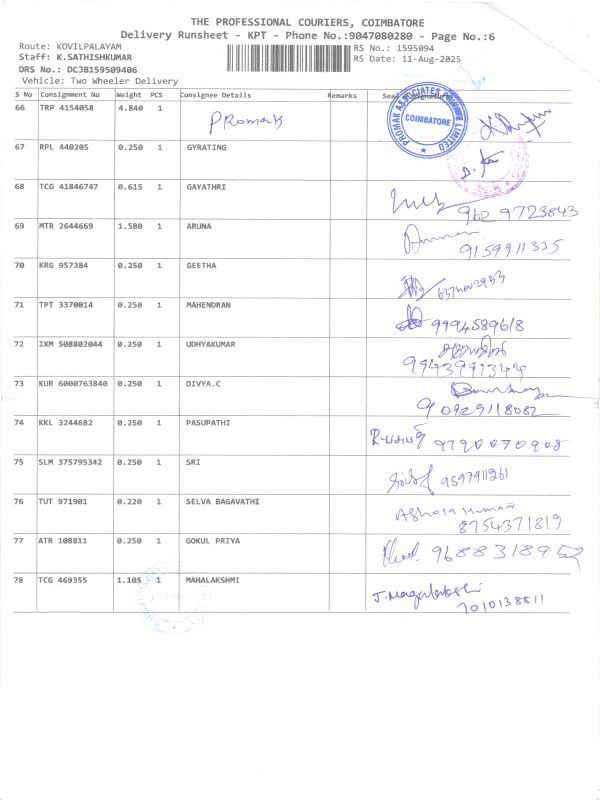 THE PROFESSIONAL COURIERS, COIMBATORE
Delivery Runsheet - KPT - Phone No.:9047080280 - Page No.:6
Route: KOVILPALAYAM
Staff: K.SATHISHKUMAR
DRS No.: DCJB159509406
Vehicle: Two Wheeler Delivery
RS No.: 1595094
RS Date: 11-Aug-2025
S No Consignment No Weight PCS Consignee Details Remarks
66 TRP 4154058 4.840 1 PRomark
PROMAK ASSOCIATES PRIVATE LIMITED
COIMBATORE
67 RPL 440205 0.250 1 GYRATING
68 TCG 41846747 0.615 1 GAYATHRI
9629723843
69 MTR 2644669 1.580 1 ARUNA
9159911335
70 KRG 957384 0.250 1 GEETHA
71 TPT 3370014 0.250 1 MAHENDRAN
9994589618
72 IXM 508802044 0.250 1 UDHYAKUMAR
73 KUR 6000763840 0.250 1 DIVYA.C
74 KKL 3244682 0.250 1 PASUPATHI
9790070908
75 SLM 375795342 0.250 1 SRI
9597911261
76 TUT 971901 0.220 1 SELVA BAGAVATHI
Ashok Kumar
8754371819
77 ATR 108811 0.250 1 GOKUL PRIYA
78 TCG 469355 1.105 1 MAHALAKSHMI
7010138811